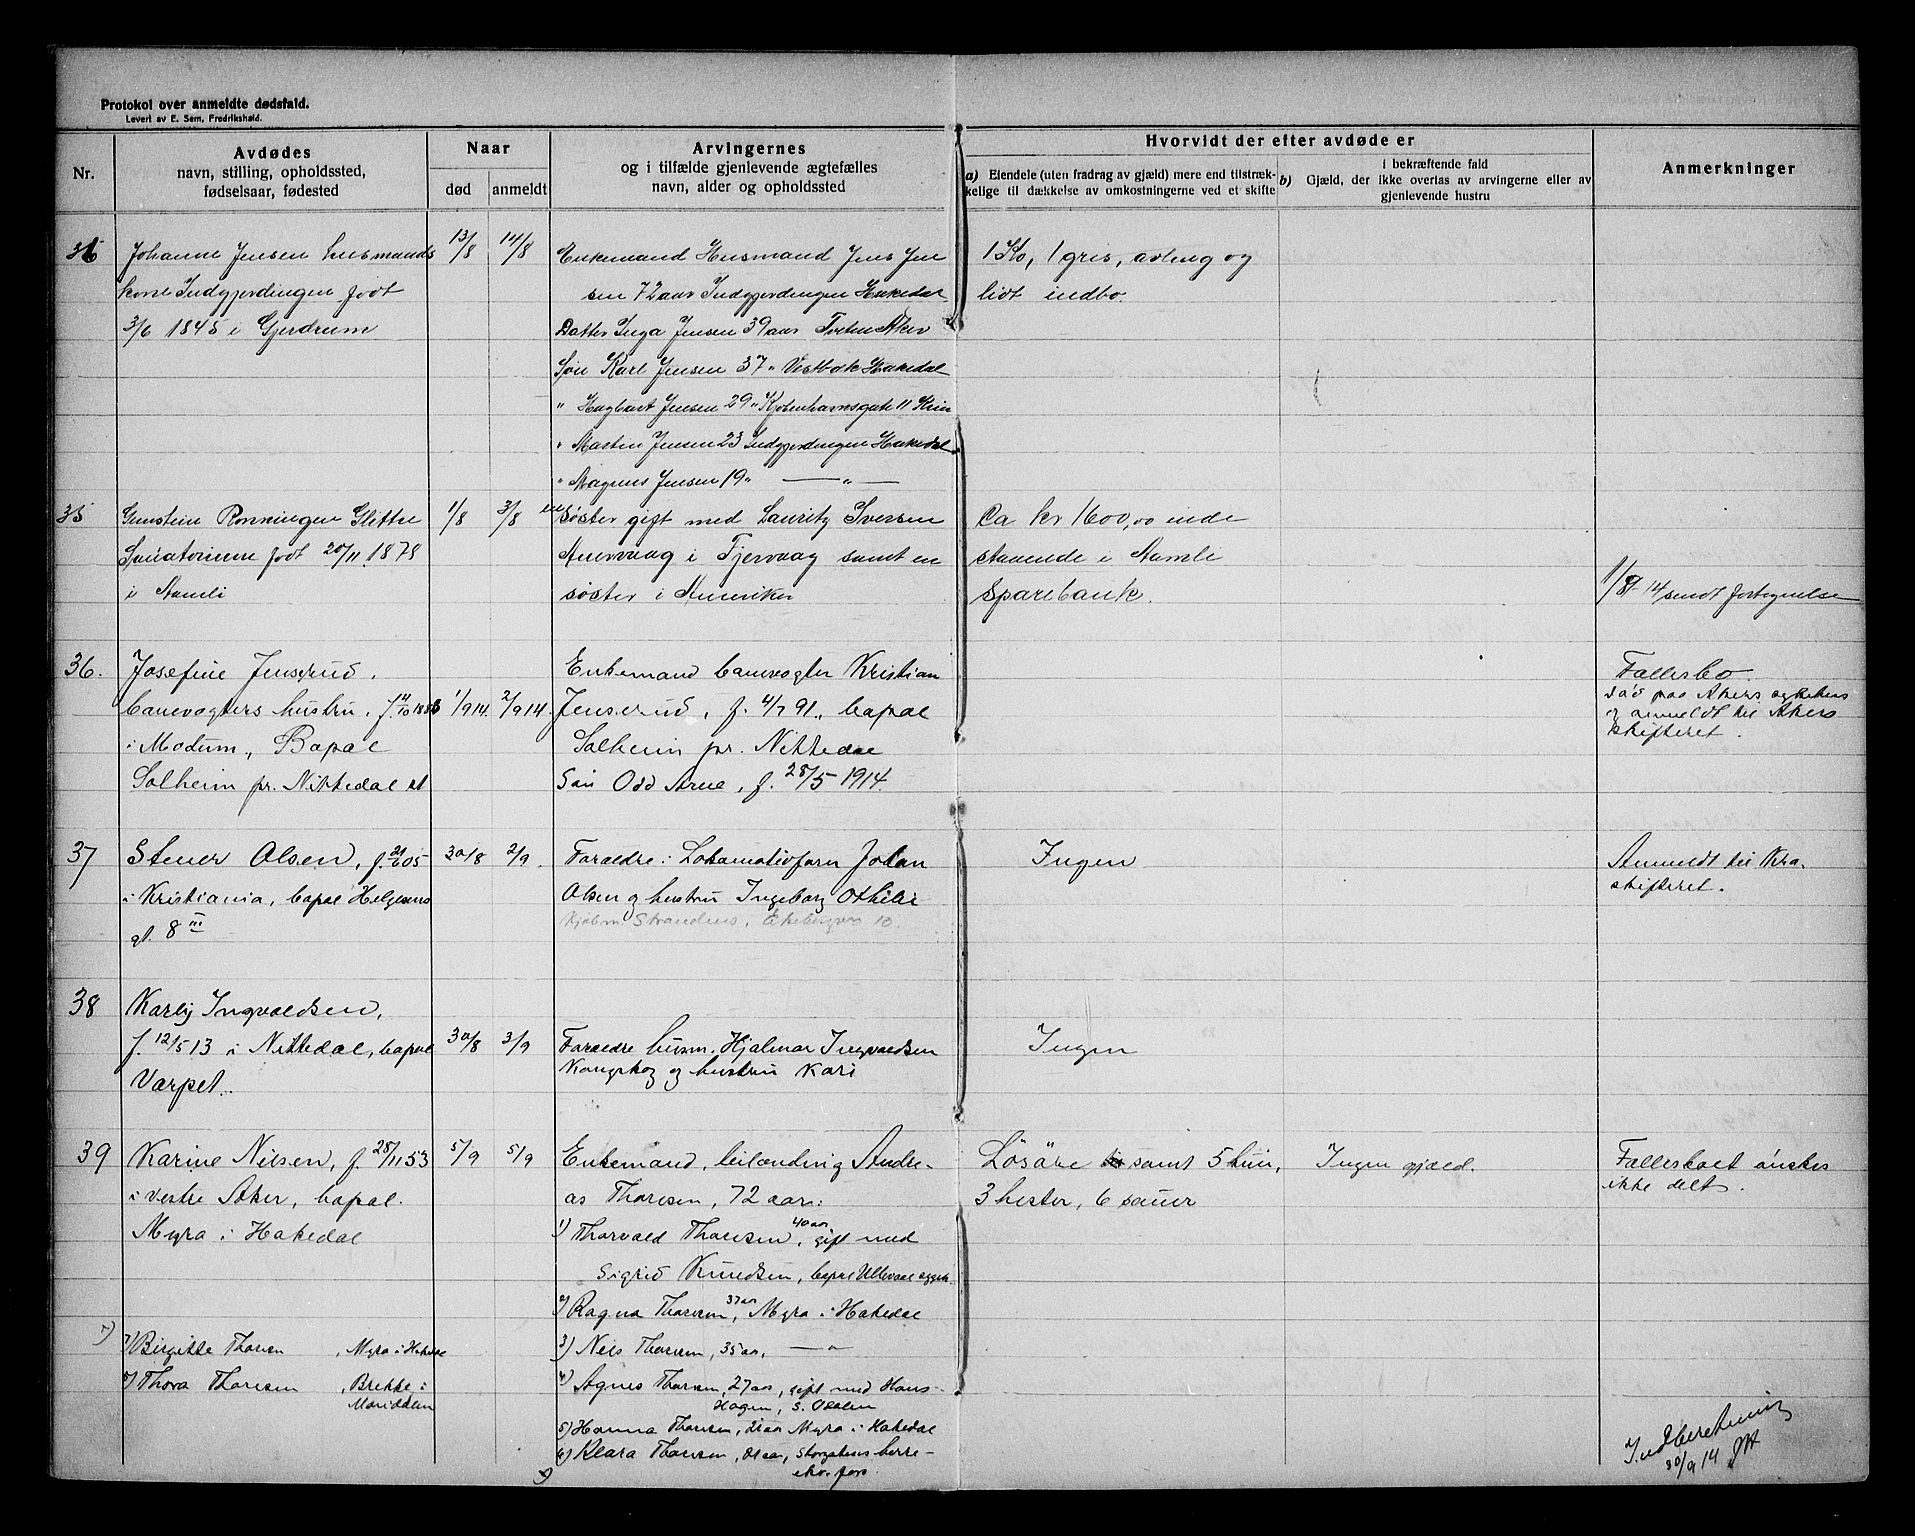 Protokol over anmeldte dødsfald.
Levert av E. Sem, Fredrikshald.
Nr.
Avdødes
navn, stilling, opholdssted,
fødselsaar, fødested
Naar
død
anmeldt
Arvingernes
og i tilfælde gjenlevende ægtefælles
navn, alder og opholdssted
Hvorvidt der efter avdøde er
a) Eiendele (uten fradrag av gjæld) mere end tilstræk-
kelige til dækkelse av omkostningerne ved et skifte
i bekræftende fald
b) Gjæld, der ikke overtas av arvingerne eller av
gjenlevende hustru
Anmerkninger
Johanne Jensen husmands
kone Indgjerdingen født
3/6 1845 i Gjerdrum
13/8
14/8
Enkemand Husmand Jens Jen
sen 72 aar Indgjerdingen Hakedal
Datter Inga Jensen 39 aar Tveten Aker
Søn Karl Jensen 37 " Hakedal
" Hagbart Jensen 29 " Kjøbenhavnsgate 11 Kria
" Martin Jensen 23 Indgjerdingen Hakedal
" Magnus Jensen 19 " — " —
1 Ko, 1 gris, avling og
lidt indbo.
35
Gunstein Rønningen Glittre
Sanatorium født 20/11 1878
i Aamli
1/8
3/8
en søster gift med Lauritz Iversen
i Fjervaag samt en
søster i Amerika
Ca kr 1600,00 inde
staaende i Aamli
Sparebank.
sendt fortegnelse
36.
Josefine Jenserud,
banevogters hustru, f.
i Modum, Bopæl
Solheim pr. Nittedal st
1/9 14.
2/9 14.
Enkemand banevogter Kristian
Jenserud, f. 4/7 91., bopæl
Solheim pr. Nittedal
Søn Odd Arne, f. 28/5 1914.
Fællesbo.
død paa Akers sykehus
og anmeldt til Akers
skifteret.
37
Olsen, f. 05
i Kristiania, bopæl Helgesens
gt. 8 III
30/8
2/9.
Forældre: Lokomotivform Johan
Olsen og hustru Ingeborg Othilie
Strandens, Ekebergvn 10
Ingen
Anmeldt til Kra.
skifteret.
38
Karly Ingvaldsen,
f. 12/5 13 i Nittedal, bopæl
Varpet.
30/8
3/9
Forældre husm. Hjalmar Ingvaldsen
Kongskog og hustru Kari
Ingen
39
Karine Nilsen, f. 28/11 53
i Vestre Aker, bopæl.
Myra i Hakedal
5/9
5/9
Enkemand, leilænding Andre-
as Thoresen, 72 aar:
1) Thorvald Thoresen, 40 aar gift med
Sigrid Knudsen, bopæl Ullevaal sykeh.
2) Ragna Thoresen, 37 aar Myra i Hakedal
3) Nils Thoresen, 35 aar, — " —
4) Agnes Thoresen, 27 aar, gift med Hans
Hagen, S. Odalen
5) Hanna Thoresen, Myra i Hakedal
6) Klara Thoresen,
7) Birgitte Thoresen, Myra i Hakedal
8) Thora Thoresen, Brekke i
Maridalen
Løsøre samt 5 kuer,
3 hester, 6 sauer
Ingen gjæld.
Fællesboet ønskes
ikke delt.
Indberetning
30/9 14